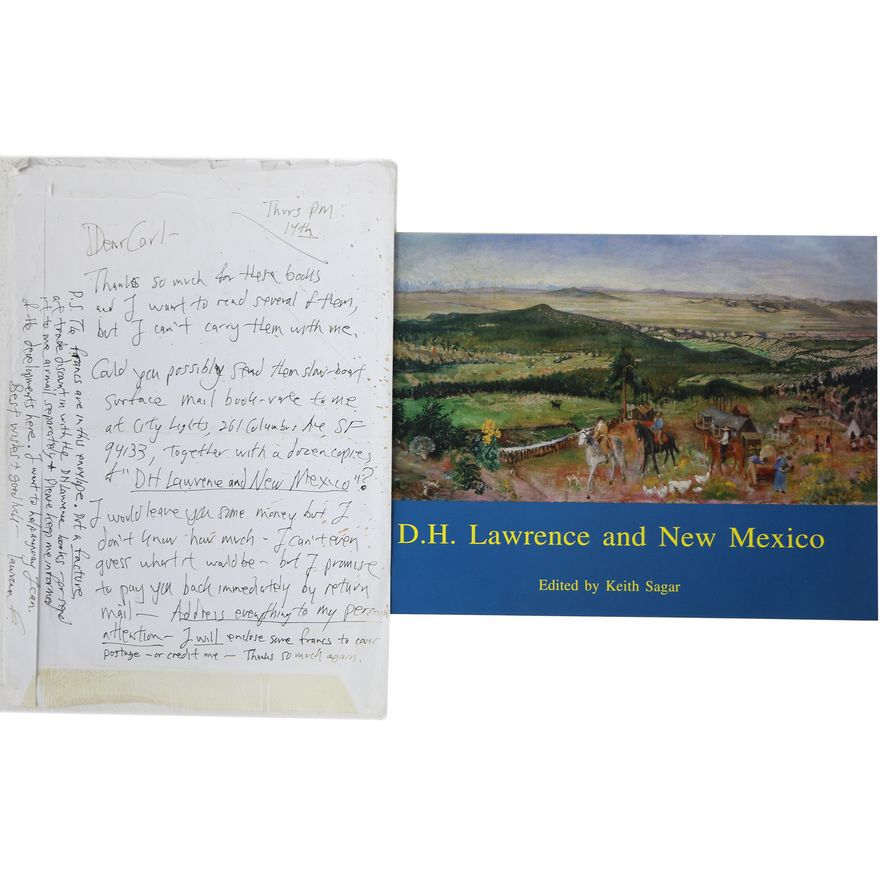 Thurs PM
14th
Dear Carl-
Thanks so much for these books
and I want to read several of them,
but I can't carry them with me.
Could you possibly send them slow-boat
surface mail book-rate to me
at City Lights, 261 Columbus Ave SF
94133, together with a dozen copies
of "DH Lawrence and New Mexico"?
I would leave you some money but I
don't know how much - I can't even
guess what it would be - but I promise
to pay you back immediately by return
mail - Address everything to my personal
attention - I will enclose some francs to cover
postage - or credit me - Thanks so much again.
P.S. The francs are in this envelope. Put a facture
at trade discount in with the DH Lawrence books - or send
it to me airmail separately & Please keep me informed
of the developments here. I want to help anyway I can.
Best wishes & good luck -
D.H. Lawrence and New Mexico
Edited by Keith Sagar